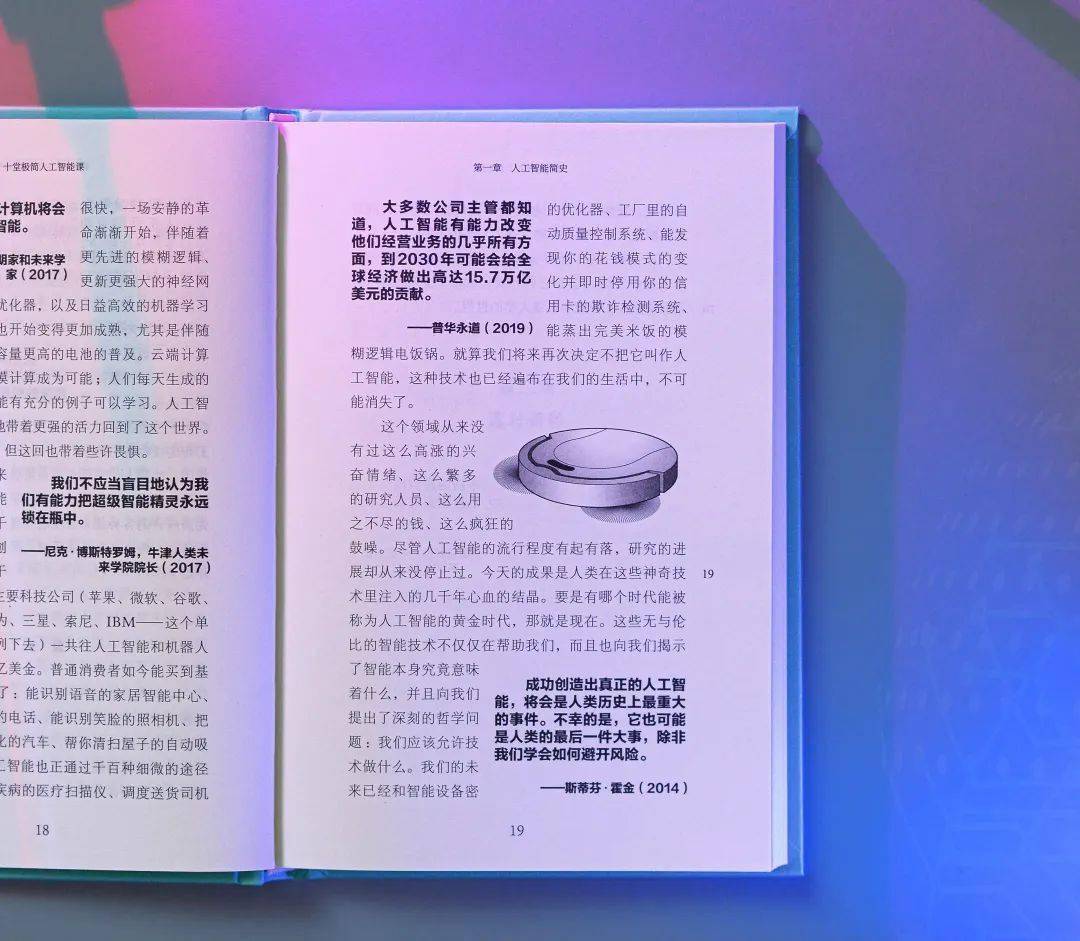 十堂极简人工智能课
计算机将会
智能。
胡家和未来学
家（2017）
很快，一场安静的革
命渐渐开始，伴随着
更先进的模糊逻辑、
更新更强大的神经网
优化器，以及日益高效的机器学习
也开始变得更加成熟，尤其是伴随
容量更高的电池的普及。云端计算
模计算成为可能；人们每天生成的
能有充分的例子可以学习。人工智
地带着更强的活力回到了这个世界。
但这回也带着些许畏惧。
来
能
于
创
于
我们不应当盲目地认为我
们有能力把超级智能精灵永远
锁在瓶中。
——尼克·博斯特罗姆，牛津人类未
来学院院长（2017）
主要科技公司（苹果、微软、谷歌、
为、三星、索尼、IBM——这个单
列下去）一共往人工智能和机器人
亿美金。普通消费者如今能买到基
了：能识别语音的家居智能中心、
的电话、能识别笑脸的照相机、把
化的汽车、帮你清扫屋子的自动吸
工智能也正通过千百种细微的途径
疾病的医疗扫描仪、调度送货司机
18
第一章 人工智能简史
大多数公司主管都知
道，人工智能有能力改变
他们经营业务的几乎所有方
面，到2030年可能会给全
球经济做出高达15.7万亿
美元的贡献。
——普华永道（2019）
的优化器、工厂里的自
动质量控制系统、能发
现你的花钱模式的变
化并即时停用你的信
用卡的欺诈检测系统、
能蒸出完美米饭的模
糊逻辑电饭锅。就算我们将来再次决定不把它叫作人
工智能，这种技术也已经遍布在我们的生活中，不可
能消失了。
这个领域从来没
有过这么高涨的兴
奋情绪、这么繁多
的研究人员、这么用
之不尽的钱、这么疯狂的
鼓噪。尽管人工智能的流行程度有起有落，研究的进
展却从来没停止过。今天的成果是人类在这些神奇技
术里注入的几千年心血的结晶。要是有哪个时代能被
称为人工智能的黄金时代，那就是现在。这些无与伦
比的智能技术不仅仅在帮助我们，而且也向我们揭示
了智能本身究竟意味
着什么，并且向我们
提出了深刻的哲学问
题：我们应该允许技
术做什么。我们的未
来已经和智能设备密
成功创造出真正的人工智
能，将会是人类历史上最重大
的事件。不幸的是，它也可能
是人类的最后一件大事，除非
我们学会如何避开风险。
——斯蒂芬·霍金（2014）
19
19